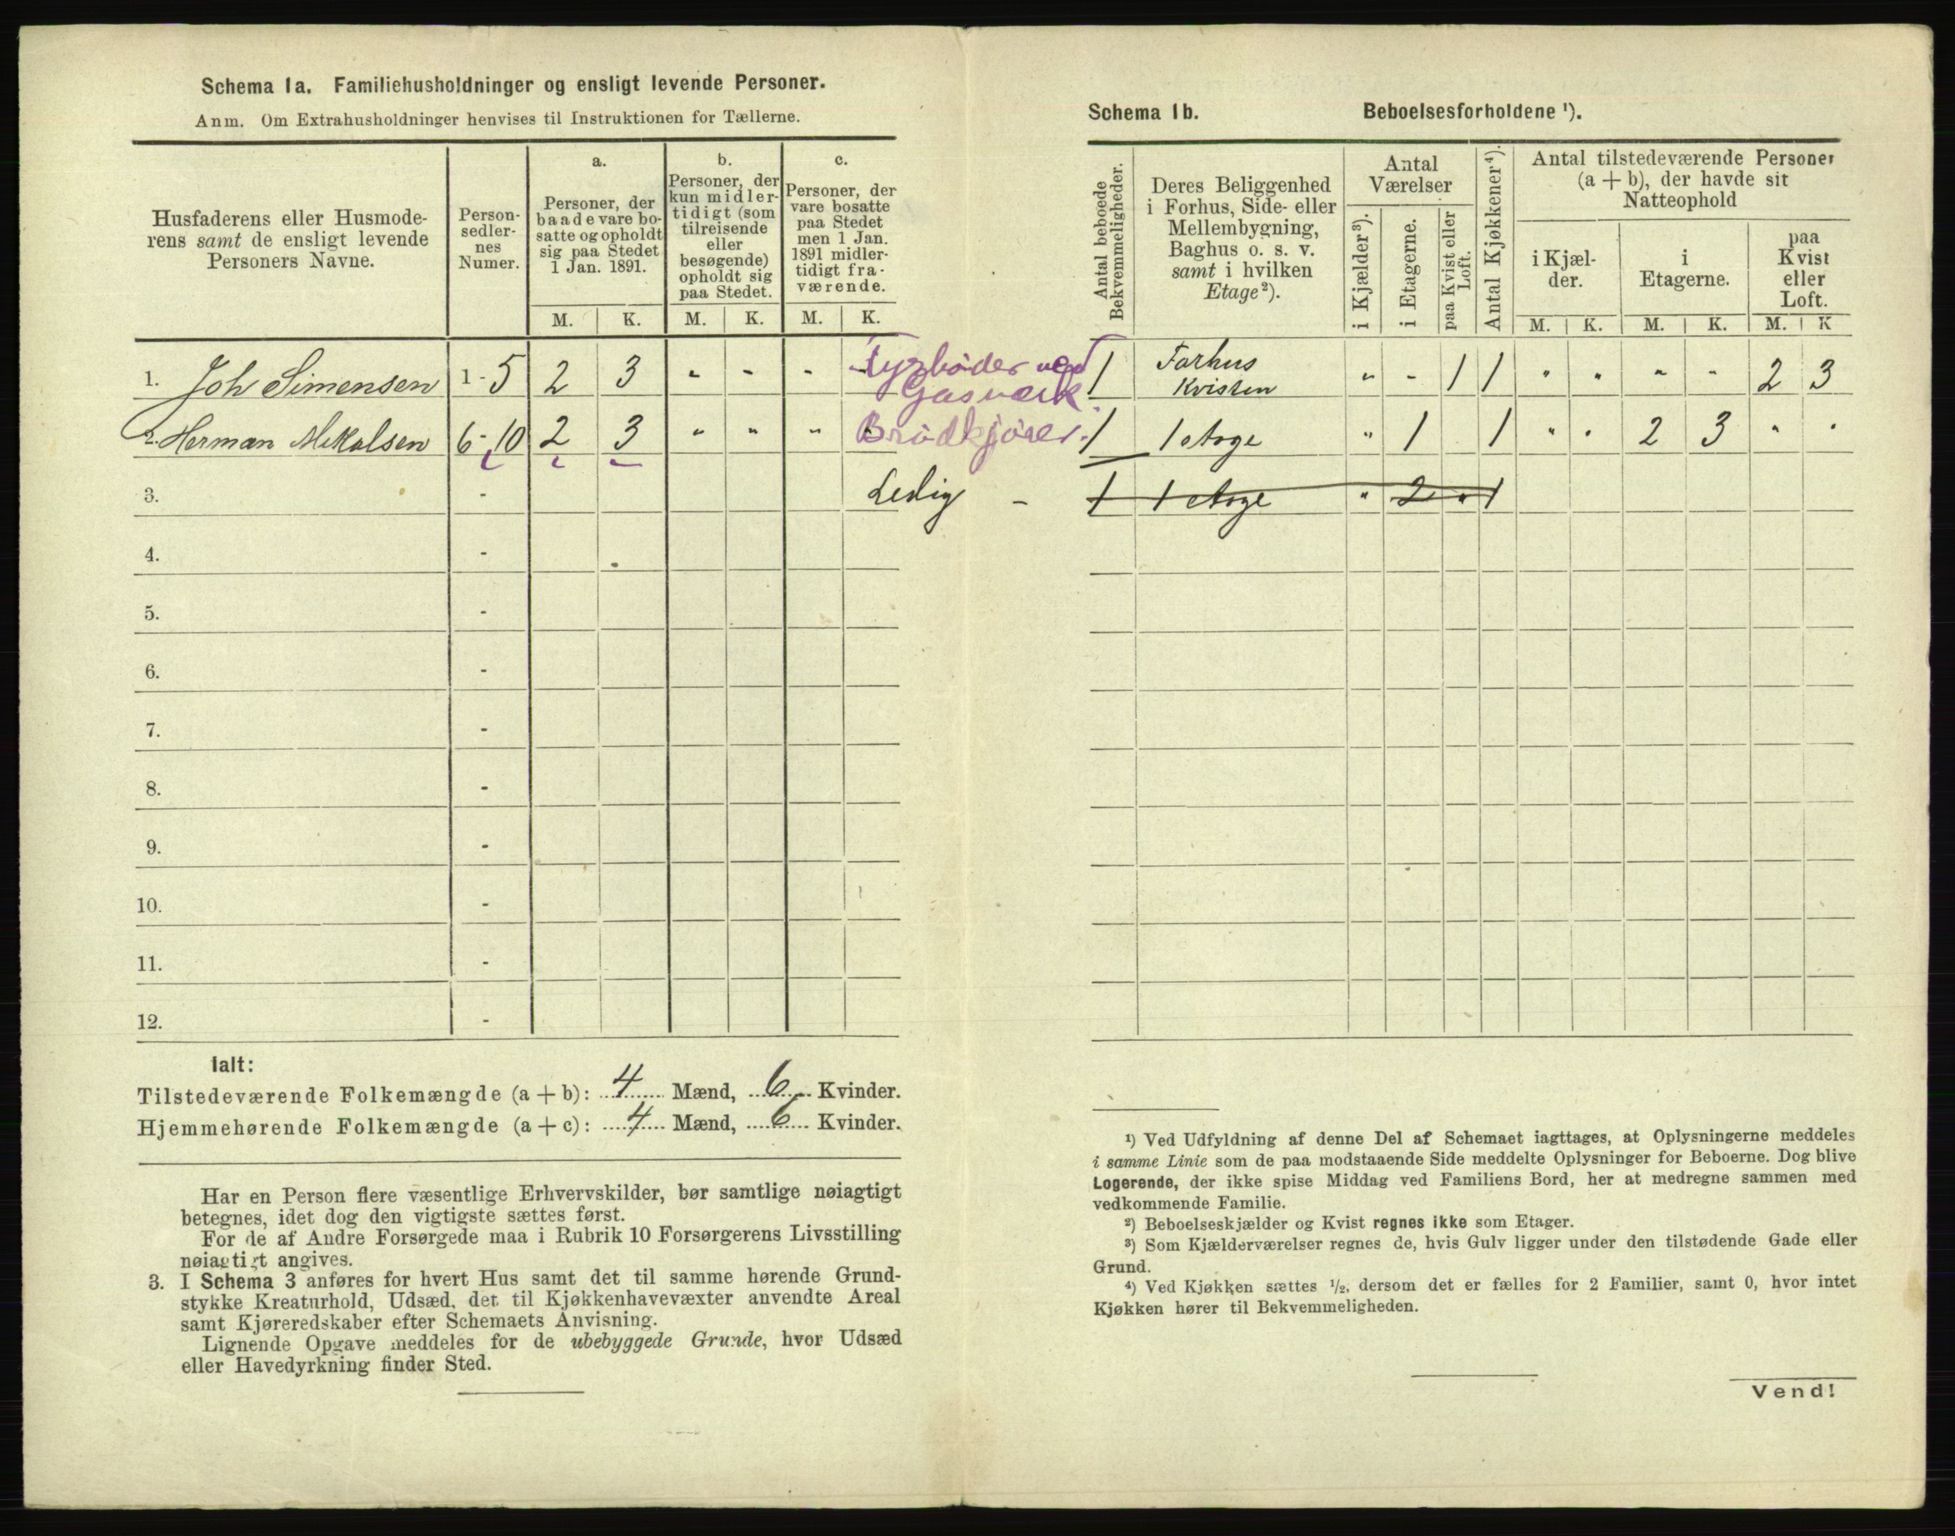 Schema 1a. Familiehusholdninger og ensligt levende Personer.
Anm. Om Extrahusholdninger henvises til Instruktionen for Tællerne.
Husfaderens eller Husmode-
rens samt de ensligt levende
Personers Navne.
Person-
sedler-
nes
Numer.
a.
Personer, der
baade vare bo-
satte og opholdt
sig paa Stedet
1 Jan. 1891.
M. K.
b.
Personer, der
kun midler-
tidigt (som
tilreisende
eller
besøgende)
opholdt sig
paa Stedet.
M. K.
c.
Personer, der
vare bosatte
paa Stedet
men 1 Jan.
1891 midler-
tidigt fra-
værende.
M. K.
1. Joh Simensen 1 - 5 2 3 " - - - Fyrbøder ved
Gasværk.
2. Herman Mikalsen 6 - 10 2 3 " " " " Brødkjører.
3. - Ledig -
4. -
5. -
6. -
7. -
8. -
9. -
10. -
11. -
12. -
Ialt:
Tilstedeværende Folkemængde (a + b): 4 Mænd, 6 Kvinder.
Hjemmehørende Folkemængde (a + c): 4 Mænd, 6 Kvinder.
Har en Person flere væsentlige Erhvervskilder, bør samtlige nøiagtigt
betegnes, idet dog den vigtigste sættes først.
For de af Andre Forsørgede maa i Rubrik 10 Forsørgerens Livsstilling
nøiagtigt angives.
3. I Schema 3 anføres for hvert Hus samt det til samme hørende Grund-
stykke Kreaturhold, Udsæd, det til Kjøkkenhavevæxter anvendte Areal
samt Kjøreredskaber efter Schemaets Anvisning.
Lignende Opgave meddeles for de ubebyggede Grunde, hvor Udsæd
eller Havedyrkning finder Sted.
Schema 1b. Beboelsesforholdene ¹).
Antal beboede
Bekvemmeligheder.
Deres Beliggenhed
i Forhus, Side- eller
Mellembygning,
Baghus o. s. v.
samt i hvilken
Etage ²).
Antal
Værelser
i Kjælder ³).
i Etagerne.
paa Kvist eller
Loft.
Antal Kjøkkener ⁴).
Antal tilstedeværende Personer
(a + b), der havde sit
Natteophold
i Kjæl-
der.
M. K.
i
Etagerne.
M. K.
paa
Kvist
eller
Loft.
M. K
1 Forhus
Kvisten " - 1 1 " " " - 2 3
1 1 Etage " 1 1 " " 2 3 " "
1 1 Etage " 2 " 1
¹) Ved Udfyldning af denne Del af Schemaet iagttages, at Oplysningerne meddeles
i samme Linie som de paa modstaaende Side meddelte Oplysninger for Beboerne. Dog blive
Logerende, der ikke spise Middag ved Familiens Bord, her at medregne sammen med
vedkommende Familie.
²) Beboelseskjælder og Kvist regnes ikke som Etager.
³) Som Kjælderværelser regnes de, hvis Gulv ligger under den tilstødende Gade eller
Grund.
⁴) Ved Kjøkken sættes ½, dersom det er fælles for 2 Familier, samt 0, hvor intet
Kjøkken hører til Bekvemmeligheden.
Vend!